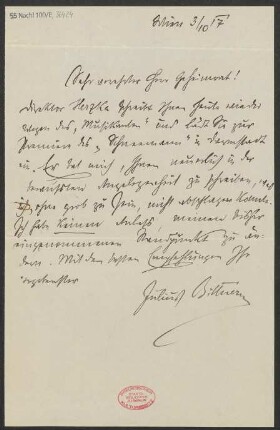 55 Nachl 100/B,
Wien 3/10 17
Sehr verehrter Herr Geheimrat!
Direktor Hertzka schreibt Ihnen heute wieder
wegen des „Musikanten" und lädt Sie zur
Premiere des „Schneemann" in Darmstadt
ein. Er bat mich, Ihnen neuerlich in der
bewussten Angelegenheit zu schreiben, was
ich, ohne grob zu sein, nicht abschlagen konnte.
Ich habe keinen Anlass, meinen bisher
eingenommenen Standpunkt zu än-
dern. Mit den besten Empfehlungen Ihr
ergebenster
Julius Bittner